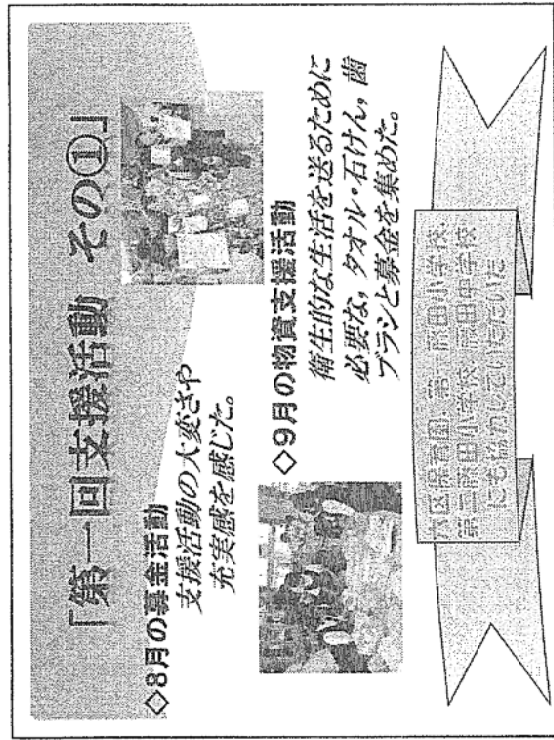 「第一回支援活動　その①」
◇8月の募金活動
支援活動の大変さや
充実感を感じた。
◇9月の物資支援活動
衛生的な生活を送るために
必要な，タオル・石けん，歯
ブラシと募金を集めた。
小学校，
第二 小学校， 中学校
にも協力していただいた